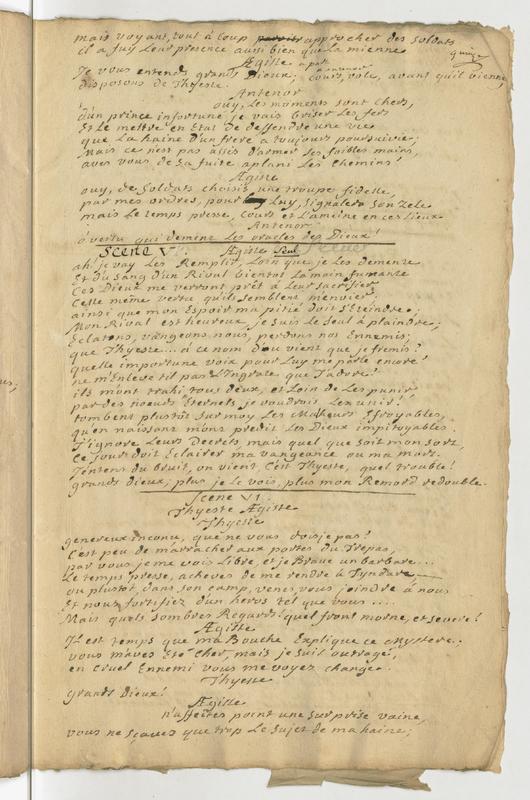 mais voyant, tout à coup approcher des soldats
il a fuy leur presence aussi bien que la mienne
quinze
Ægiste apart
Je vous entends grands Dieux; cours, vole, avant quil vienne,
disposons de Thyeste.
Antenor
ouy, Les moments sont chers,
d'un prince infortuné je vais briser les fers
Et Le mettre en Etat de deffendre une vie
que La haine d'un frere a toujours poursuivie;
Mais ce n'est pas assés d'armer Les foibles mains,
avés vous de sa fuite aplani Les chemins?
Ægiste
ouy, de Soldats choisis une troupe fidelle,
par mes ordres, pour Luy, signalera son Zele
mais Le temps presse, cours et L'ameine en ces Lieux
Antenor
ô vertu qui dement Les oracles des Dieux!
Scene V
Ægiste seul
ah! je vay Les Remplir, Loin que je Les demente
Et du sang d'un Rival bientot La main fumante
Ces Dieux me verront prêt à Leur sacrifier
Cette même vertu quils semblent m'envier
ainsi que mon Espoir ma pitié doit s'Eteindre;
Mon Rival est heureux, je suis Le seul à plaindre;
Eclatons, vangeons nous, perdons nos Ennemis;
que Thyeste... à ce nom d'ou vient que je fremis?
quelle importune voix pour Luy me parle encore?
ne m'Enleve til pas L'Ingrate que J'adore?
ils m'ont trahi tous deux, et Loin de Les punir,
par des noeuds Eternels je voudrois Les unir!
tombent plustôt sur moy Les Malheurs Effroyables,
qu'en naissant m'ont predit Les Dieux impitoyables.
J'ignore Leurs Decrets mais quel que soit mon sort,
Ce jour doit Eclairer ma vangeance ou ma mort.
J'entens du bruit, on vient, C'est Thyeste, quel trouble!
grands dieux, plus je Le vois, plus mon Remord redouble.
Scene VI.
Thyeste Ægiste
Thyeste
genereux inconu, que ne vous doisje pas?
C'est peu de m'arracher aux portes du Trepas,
par vous je me vois Libre, et je Brave un barbare...
Le temps presse, achevés de me rendre à Tyndare
ou plustot, dans son camp, venés vous joindre à nous
Et nous fortifiez d'un heros tel que vous ....
Mais quels sombres Regards! quel front morne, et severe!
Ægiste
Il est temps que ma Bouche Explique ce Mystere;
vous m'avés Eté cher, mais je suis outragé,
en Cruel Ennemi vous me voyez changé.
Thyeste
grands Dieux!
Ægiste
n'affectés point une surprise vaine,
vous ne sçavés que trop Le sujet de ma haine;